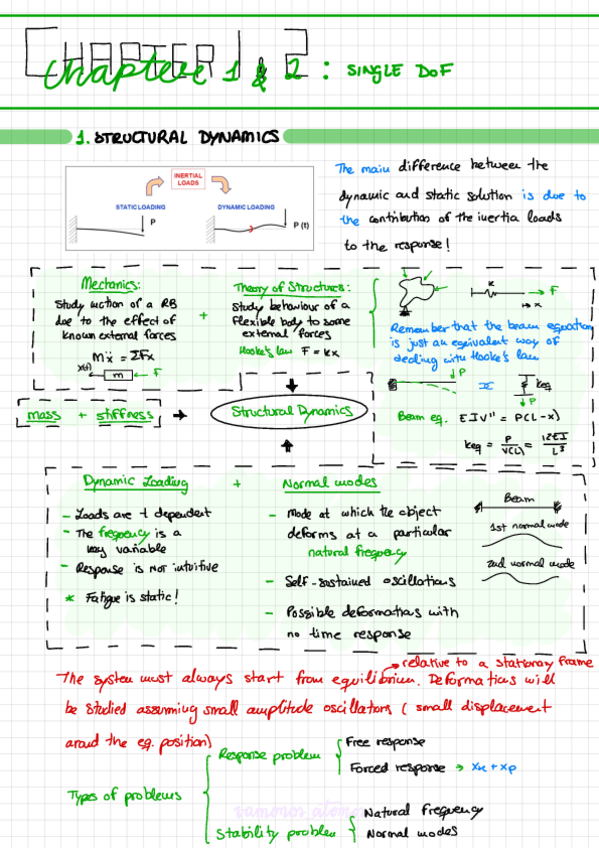 CHAPTER 1 & 2
Chapter 1 & 2 : SINGLE DOF
1. STRUCTURAL DYNAMICS
INERTIAL
LOADS
STATIC LOADING
DYNAMIC LOADING
P
P (t)
The main difference between the
dynamic and static solution is due to
the contribution of the inertia loads
to the response!
Mechanics:
Study motion of a RB
due to the effect of
known external forces
mẍ = ΣFx
x(t)
m
F
+
Theory of Structures:
Study behaviour of a
flexible body to some
external forces
Hooke's law F = kx
k
F
x
Remember that the beam equation
is just an equivalent way of
dealing with Hooke's law
P
keq
P
Beam eq. EIV'' = P(L-x)
keq = P/V(L) = 12EI/L³
mass + stiffness →
Structural Dynamics
Dynamic Loading + Normal modes
- Loads are t dependent
- The freqency is a
key variable
- Response is NOT intuitive
* Fatigue is static!
- Mode at which the object
deforms at a particular
natural freqency
- Self-sustained oscillations
- Possible deformations with
no time response
Beam
1st normal mode
2nd normal mode
→ relative to a stationary frame
The system must always start from equilibrium. Deformations will
be studied assuming small amplitude oscillators ( small displacement
aroud the eq. position)
Types of problems
Response problem
Free response
Forced response → XH + XP
vamonos_atomo
Stability problem
Natural frequency
Normal modes